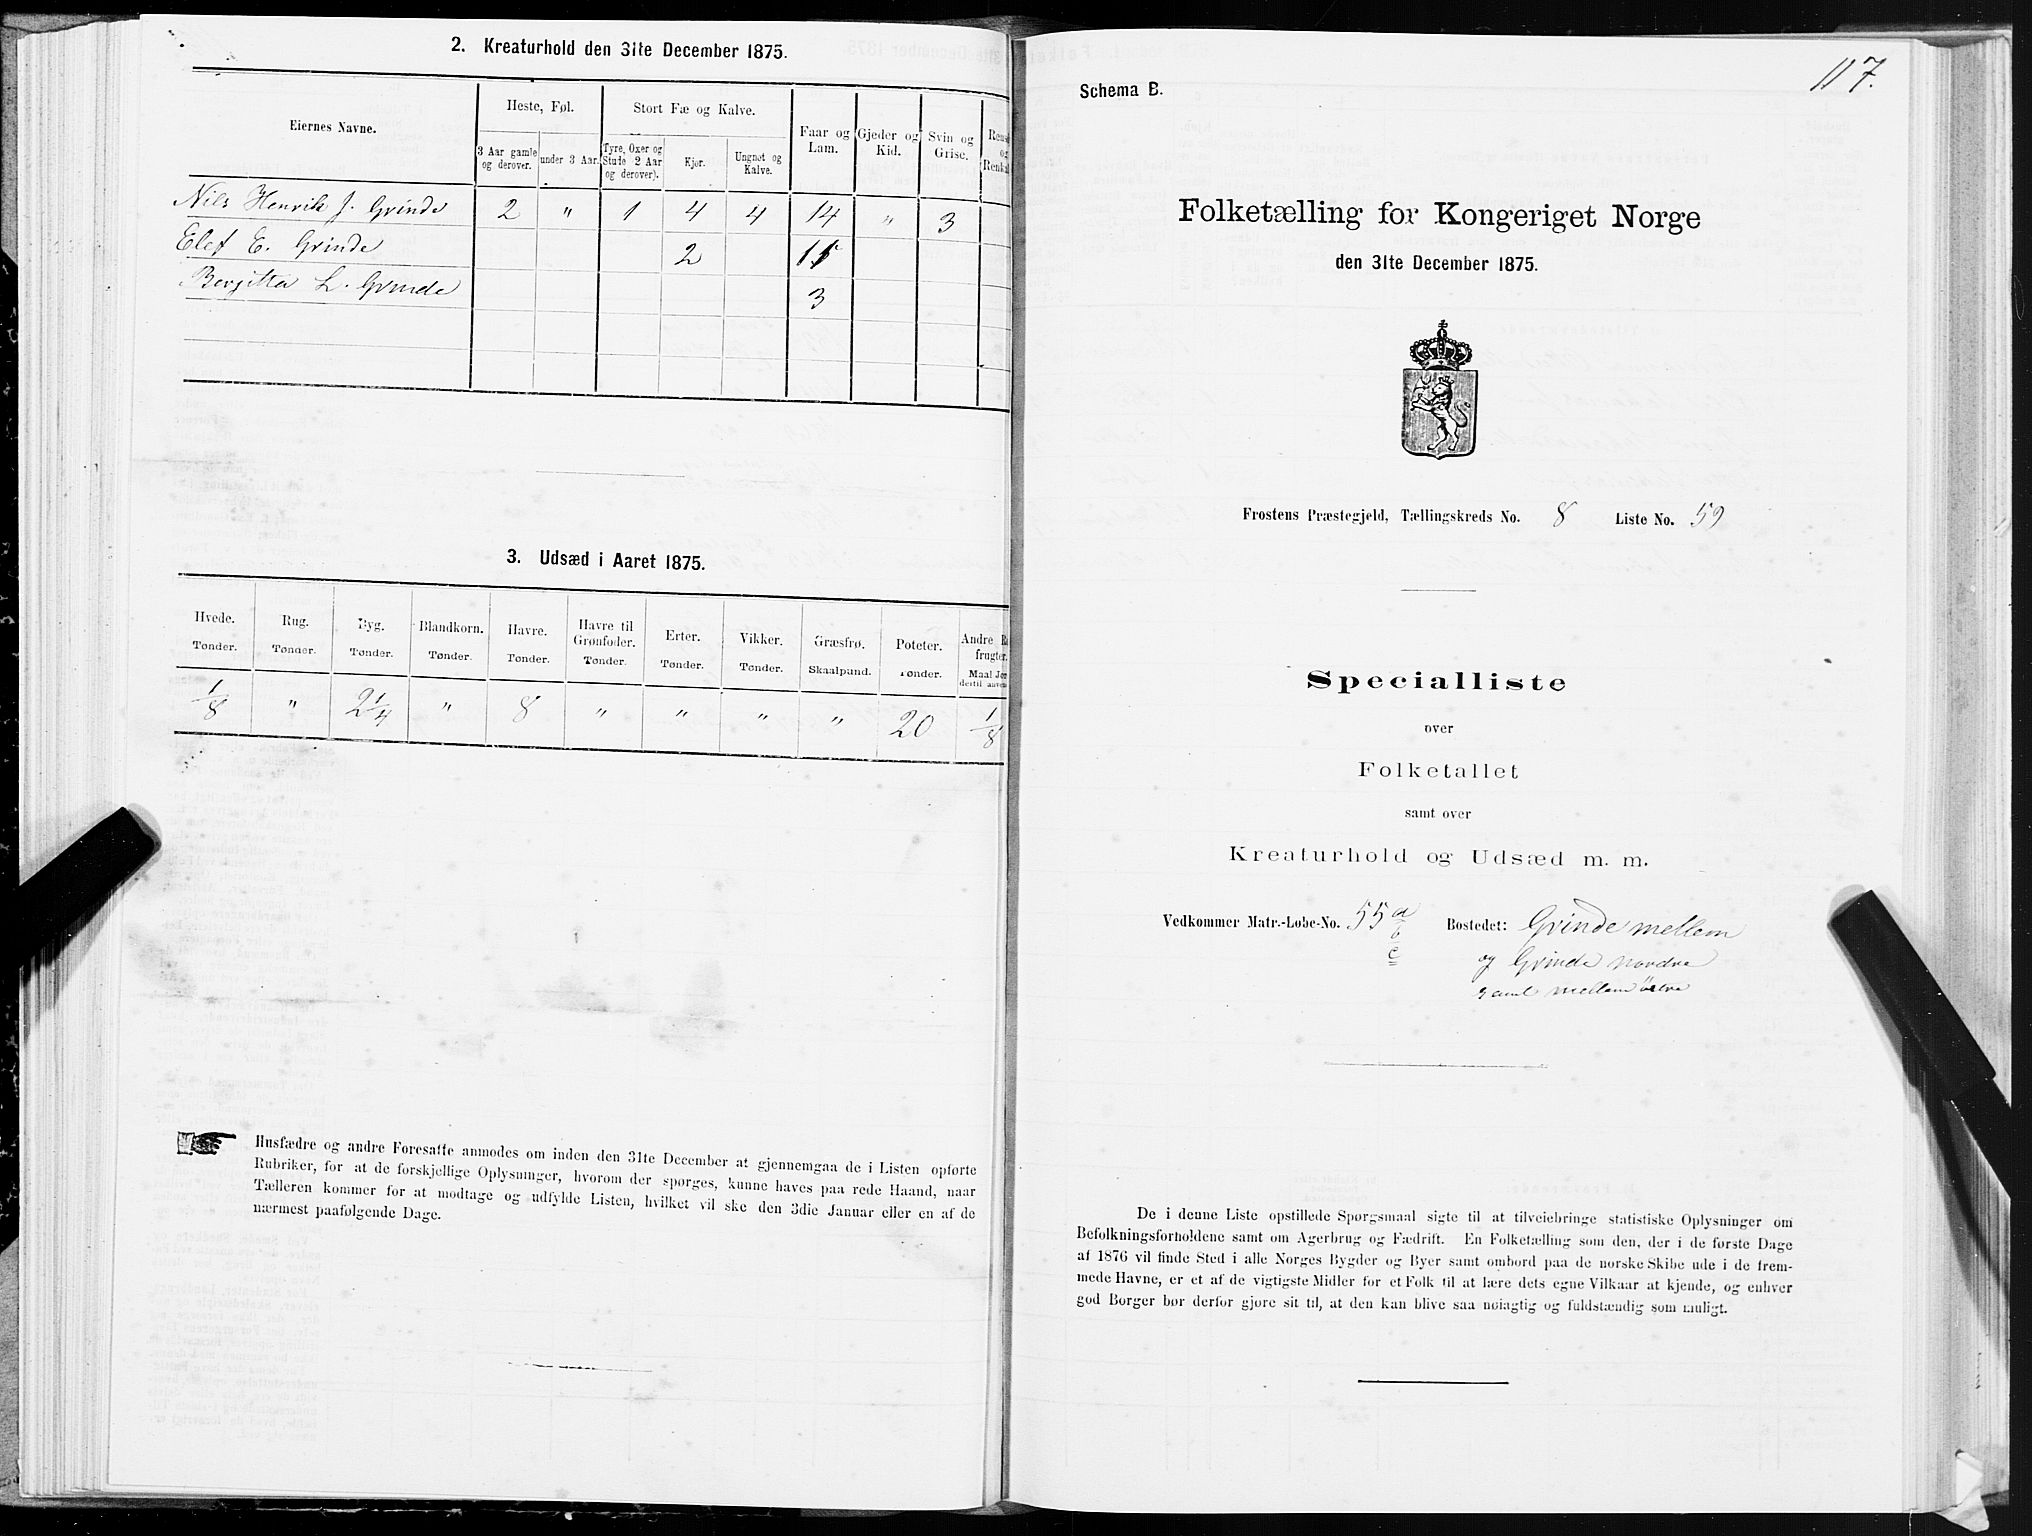 2. Kreaturhold den 31te December 1875.
Eiernes Navne.
Heste, Føl.
Stort Fæ og Kalve.
Faar og Lam.
Gjeder og Kid.
Svin og Grise.
3 Aar gamle og derover.
under 3 Aar.
Tyre, Oxer og Stude 2 Aar og derover).
Kjør.
Ungnøt og Kalve.
Nils Henrik J. Grinde 2 " 1 4 4 14 " 3
Elef E. Grinde 2
Bergitta L. Grinde 3
3. Udsæd i Aaret 1875.
Hvede. Rug. Byg. Blandkorn. Havre. Havre til Grønfoder. Erter. Vikker. Græsfrø. Poteter.
Tønder. Tønder. Tønder. Tønder. Tønder. Tønder. Tønder. Tønder. Skaalpund. Tønder.
1/8 " 2 1/4 " 8 " " " " 20 1/8
Husfædre og andre Foresatte anmodes om inden den 31te December at gjennemgaa de i Listen opførte
Rubriker, for at de forskjellige Oplysninger, hvorom der spørges, kunne haves paa rede Haand, naar
Tælleren kommer for at modtage og udfylde Listen, hvilket vil ske den 3die Januar eller en af de
nærmest paafølgende Dage.
117.
Schema B.
Folketælling for Kongeriget Norge
den 31te December 1875.
Frostens Præstegjeld, Tællingskreds No. 8 Liste No. 59
Specialliste
over
Folketallet
samt over
Kreaturhold og Udsæd m. m.
Vedkommer Matr.-Løbe-No. 55 a b c Bostedet: Grinde mellem
og Grinde nordre
samt mellem östre
De i denne Liste opstillede Spørgsmaal sigte til at tilveiebringe statistiske Oplysninger om
Befolkningsforholdene samt om Agerbrug og Fædrift. En Folketælling som den, der i de første Dage
af 1876 vil finde Sted i alle Norges Bygder og Byer samt ombord paa de norske Skibe ude i de frem-
mede Havne, er et af de vigtigste Midler for et Folk til at lære dets egne Vilkaar at kjende, og enhver
god Borger bør derfor gjøre sit til, at den kan blive saa nøiagtig og fuldstændig som muligt.